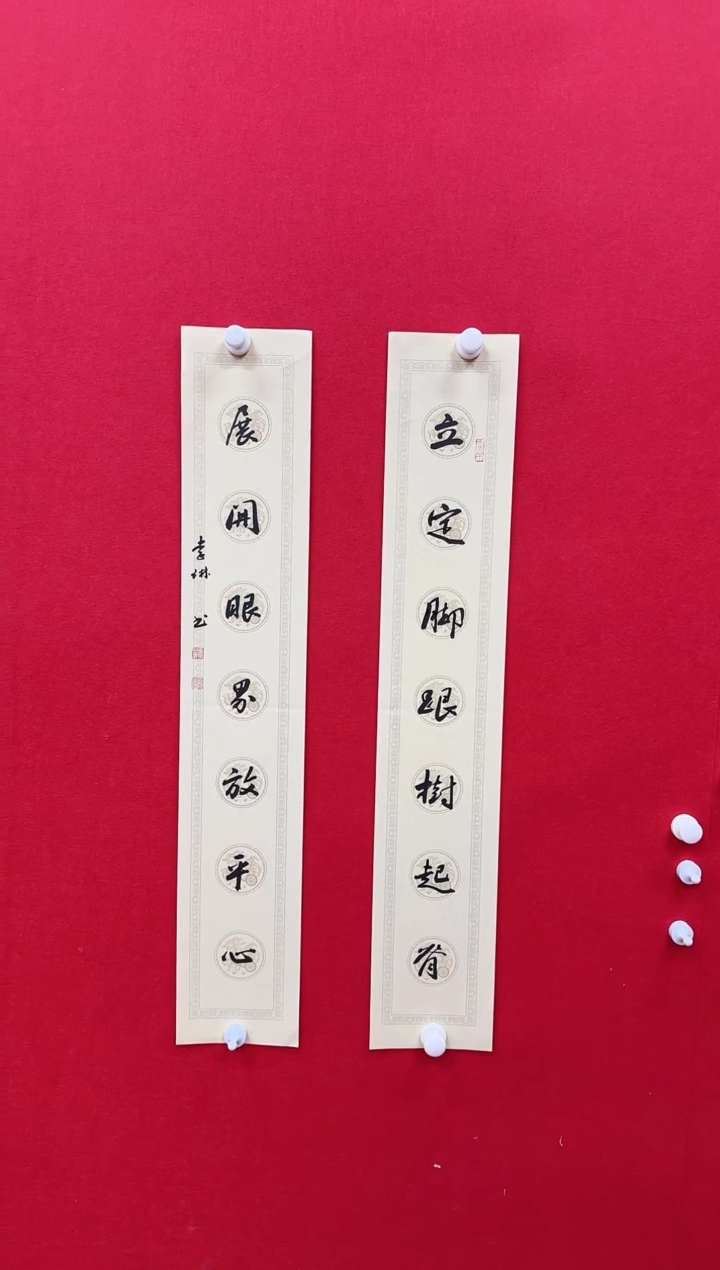 立定脚跟樹起脊
展開眼界放平心
李琳书